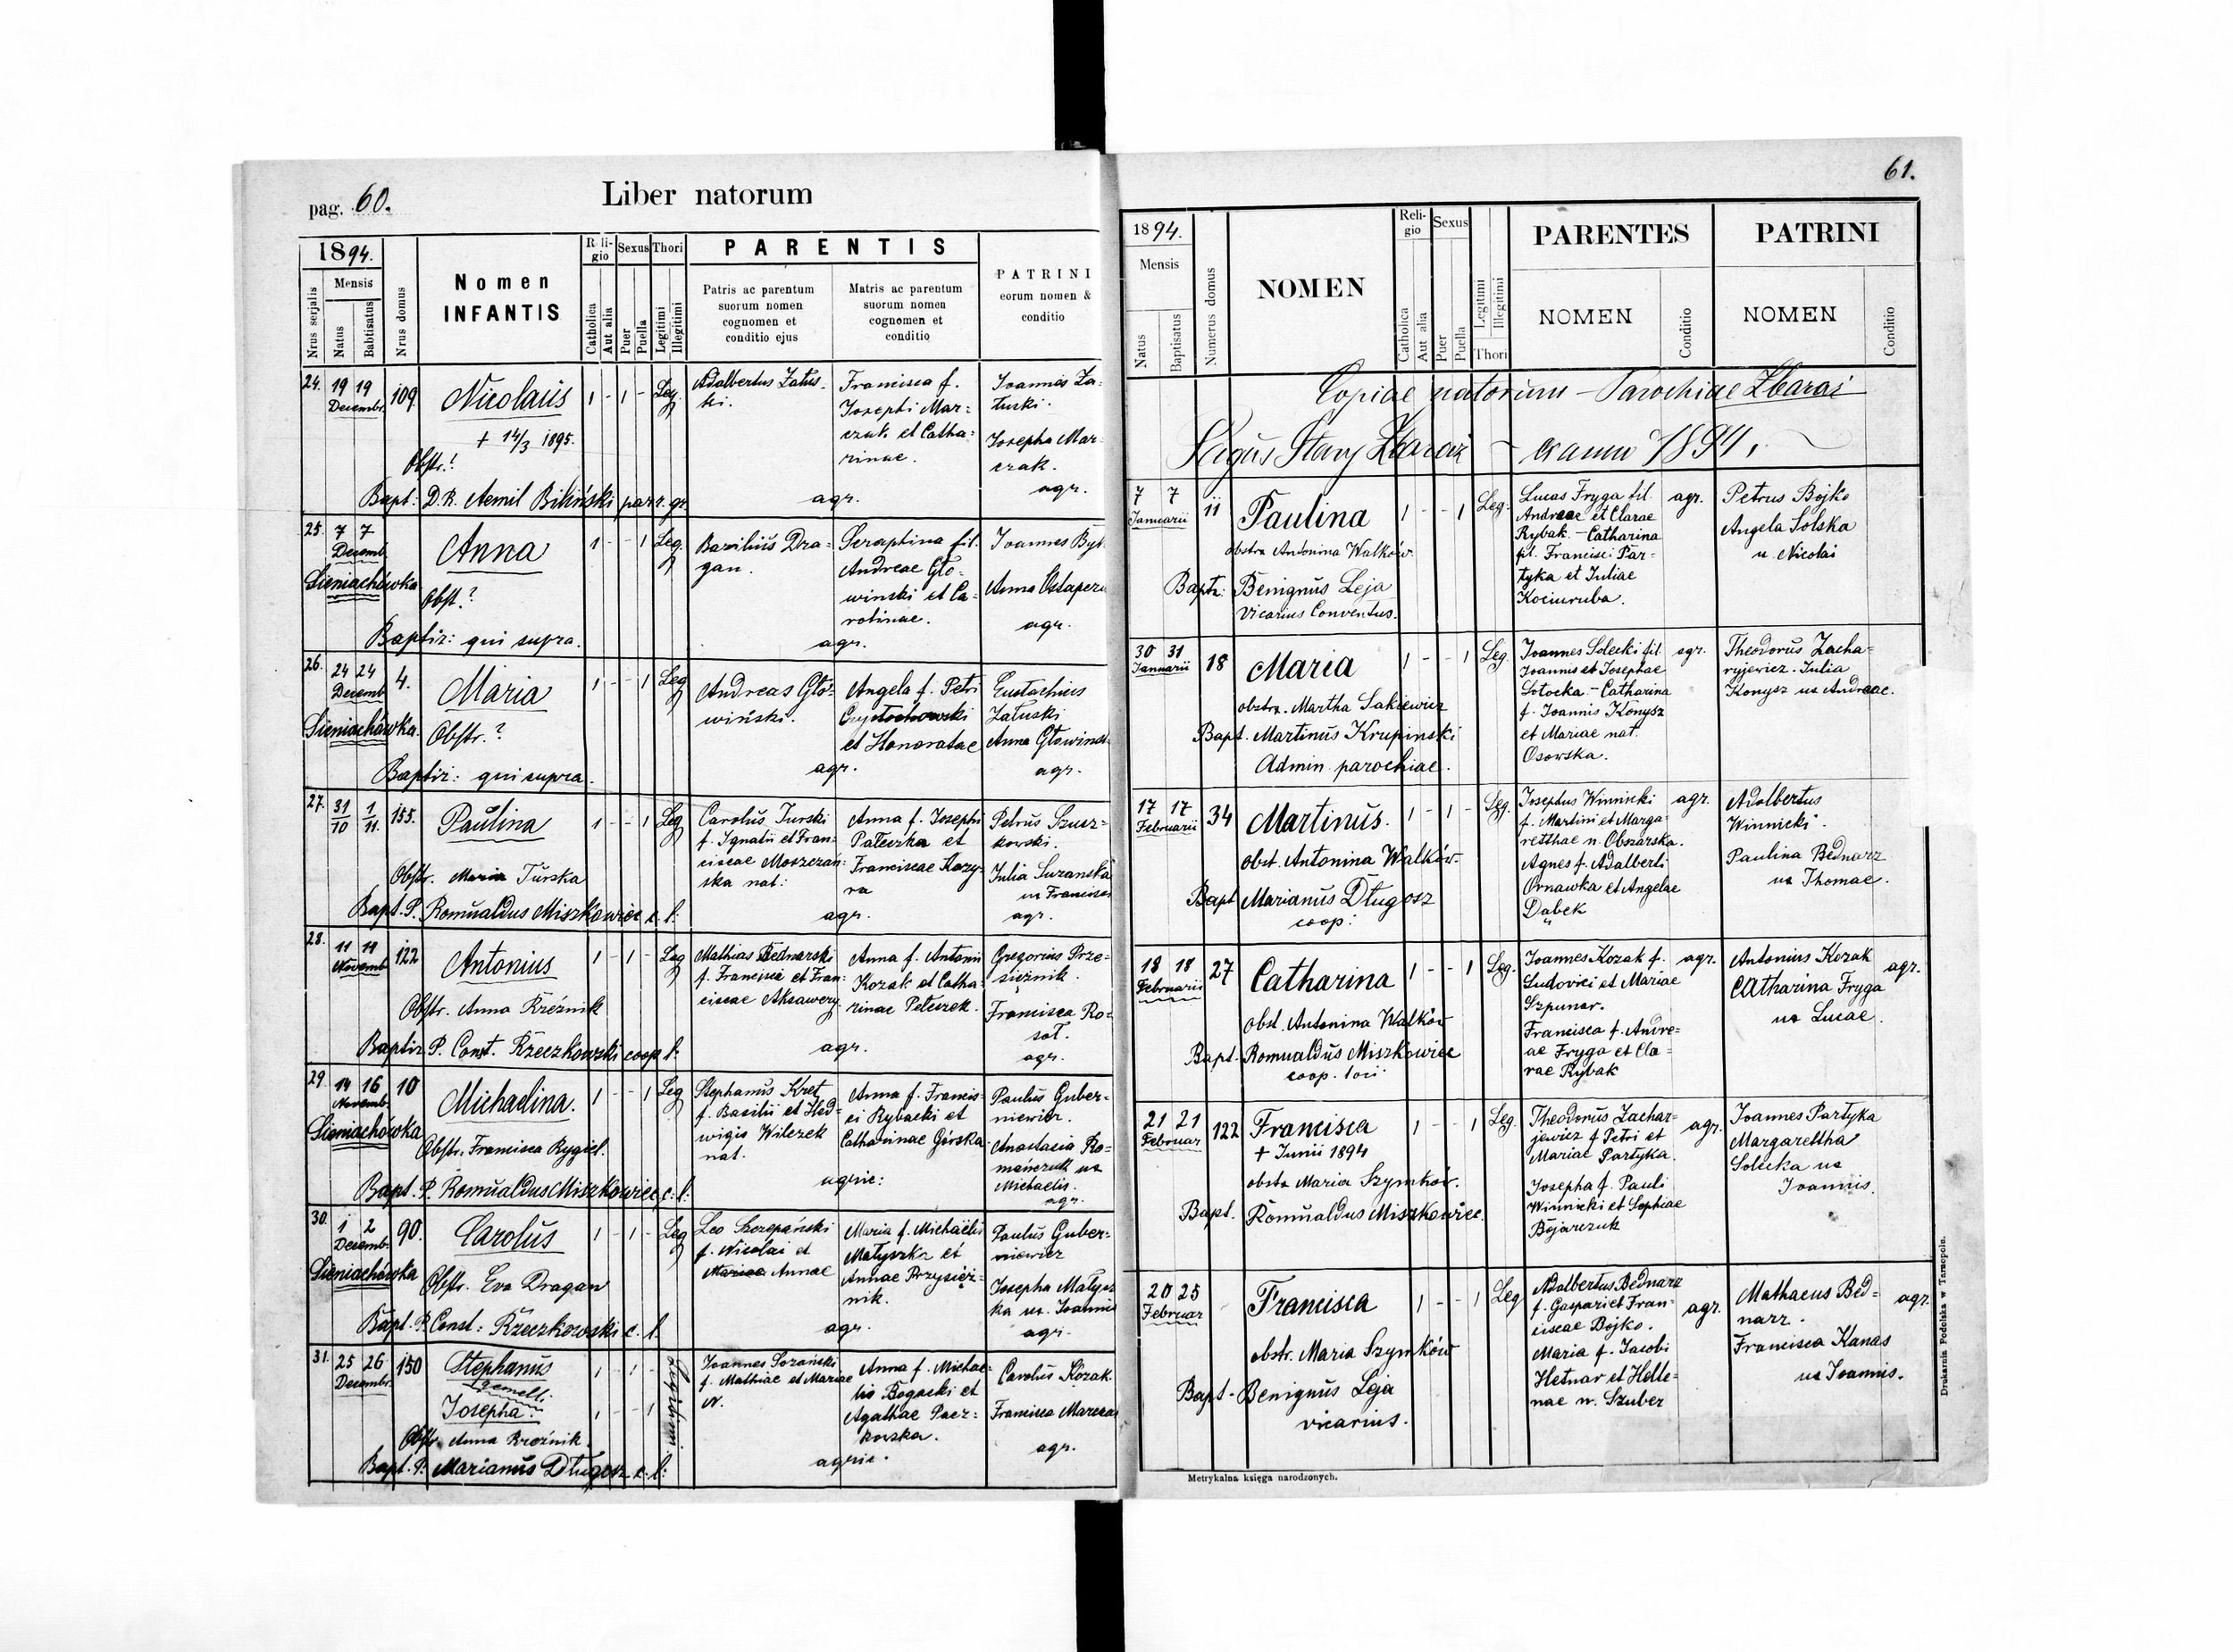 pag. 60.
Liber natorum
1894.
Mensis
Nrus serjalis
Natus
Babtisatus
Nrus domus
Nomen
INFANTIS
Reli-
gio
Catholica
Aut alia
Sexus
Puer
Puella
Thori
Legitimi
Illegitimi
PARENTIS
Patris ac parentum
suorum nomen
cognomen et
conditio ejus
Matris ac parentum
suorum nomen
cognomen et
conditio
PATRINI
eorum nomen &
conditio
24.
19 19
Decembr.
109.
Nicolaus
+ 14/3 1895.
Obstr.?
Bapt. D. R. Aemil Biliński par. gr.
1 - 1 -
Leg.
Adalbertus Załus-
ki.
Francisca f.
Josephi Mar-
czak et Catha-
rinae.
agr.
Joannes Za-
łuski.
Josepha Mar-
czak.
agr.
25.
7 7
Decemb
Sieniachówka
Anna
Obst.?
Baptiz: qui supra.
1 - - 1
Leg.
Basilius Dra-
gan.
Seraphina fil.
Andreae Gło-
winski et Ca-
rolinae.
agr.
Joannes Byk
Anna Ostapczu
agr.
26.
24 24
Decemb
4.
Sieniachówka.
Maria
Obstr.?
Baptiz: qui supra.
1 - - 1
Leg
Andreas Gło-
wiński.
Angela f. Petri
et Honoratae
agr.
Eustachius
Załuski
Anna Głowinsk
agr.
27.
31/10 1/11.
155.
Paulina
Obstr. Maria Turska
Bapt. P. Romualdus Miszkowiec c. l:
1 - - 1
Leg
Carolus Turski
f. Ignatii et Fran-
ciscae Moszczań-
ska nat:
Anna f. Josephi
Pałeczka et
Franciscae Kozy-
ra
agr.
Petrus Szusz-
kowski.
Julia Suzanska
ux Francisci
agr.
28.
11 11
Novemb
122
Antonius
Obstr. Anna Kreznik
Baptiz P. Const. Rzeczkowski coop l:
1 - 1 -
Leg
Mathias Bednarski
f. Francisci et Fran-
ciscae Aksawery
Anna f. Antonii
Kozak et Catha-
rinae Peteczek.
agr.
Gregorius Prze-
siężnik.
Francisca Ro-
soł.
agr.
29.
14 16
Novemb
10
Sieniachówka
Michaelina.
Obstr. Francisca Rygiel.
Bapt. P. Romualdus Miszkowiec c: l:
1 - - 1
Leg
Stephanus Kret
f. Basilii et Hed-
wigis Wilczek
nat.
Anna f. Francis-
ci Rybacki et
Catharinae Górska
agric:
Paulus Guber-
niewicz.
Anastasia Ro-
mańczuk ux
Michaelis.
agr.
30.
1 2
Decemb.
90.
Sieniachówka
Carolus
Obstr. Eva Dragan
Bapt. P. Const: Rzeczkowski c. l.
1 - 1 -
Leg
Leo Szczepański
f. Nicolai et
Mariae Annae
Maria f. Michaelis
Matyszka et
Annae Przysięż-
nik.
agr.
Paulus Guber-
niewicz
Josepha Matysz
ka ux. Joannis
agr.
31.
25 26
Decembr.
150
Stephanus
gemelli.
Josepha.
Obstr. Anna Kroźnik.
Bapt. P. Marianus Długosz c. l:
1 - 1 -
1 - - 1
Legitimi.
Joannes Sozański
f. Mathiae et Mariae
N.
Anna f. Michae-
lis Bogacki et
Agathae Pacz-
kowska.
agric.
Carolus Kozak
Francisca Marczak
agr.
61.
1894.
Mensis
Natus
Baptisatus
Numerus domus
NOMEN
Reli-
gio
Catholica
Aut alia
Sexus
Puer
Puella
Legitimi
Illegitimi
Thori
PARENTES
NOMEN
Conditio
PATRINI
NOMEN
Conditio
Copiae natorum - Parochiae Zbaraż
Pagus Stary Zbaraż - ex anno 1894.
7 7
Januarii
11
Paulina
obstrx Antonina Walków
Baptz: Benignus Leja
Vicarius Conventus.
1 - - 1
Leg.
Lucas Fryga fil.
Andreae et Clarae
Rybak. - Catharina
fil. Francisci Par-
tyka et Juliae
Kociuruba.
agr.
Petrus Bojko
Angela Solska
u. Nicolai
30 31
Januarii
18
Maria
obstrx. Martha Sakiewicz
Bapt. Martinus Krupinski
Admin parochiae.
1 - - 1
Leg.
Joannes Solecki fil
Joannis et Josephae
Sotocka - Catharina
f. Joannis Konysz
et Mariae nat.
Osowska.
agr.
Theodorus Zacha-
ryjewicz. Julia
Konysz ux Andreae.
17 17
Februarii
34
Martinus.
obst. Antonina Walków.
Bapt Marianus Długosz
coop:
1 - 1 -
Leg.
Josephus Winnicki
f. Martini et Marga-
retthae n. Obszarska.
Agnes f. Adalberti
Ornawka et Angelae
Dąbek
agr.
Adalbertus
Winnicki.
Paulina Bednarz
ux Thomae.
18 18
Februarii
27
Catharina
obst. Antonina Walków
Bapt. Romualdus Miszkowiec
coop. loci
1 - - 1
Leg.
Joannes Kozak f.
Ludovici et Mariae
Szpunar.
Francisca f. Andre-
ae Fryga et Cla-
rae Rybak
agr.
Antonius Kozak
Catharina Fryga
ux Lucae.
agr.
21 21
Februar
122
Francisca
+ Junii 1894
obstx Maria Szymków.
Bapt. Romualdus Miszkowiec.
1 - - 1
Leg.
Theodorus Zachar-
jewicz f Petri et
Mariae Partyka.
Josepha f. Pauli
Winnicki et Sophiae
Bojarczuk
agr.
Joannes Partyka
Margarettha
Solecka ux
Joannis.
20 25
Februar
Francisca
obstr. Maria Szymków
Bapt- Benignus Leja
vicarius.
1 - - 1
Leg
Adalbertus Bednarz
f. Gaspari et Fran-
ciscae Bojko.
Maria f. Jacobi
Hetnar et Helle-
nae n. Szuber
agr.
Mathaeus Bed-
narz.
Francisca Kanas
ux Joannis.
agr.
Metrykalna księga narodzonych.
Drukarnia Podolska w Tarnopolu.